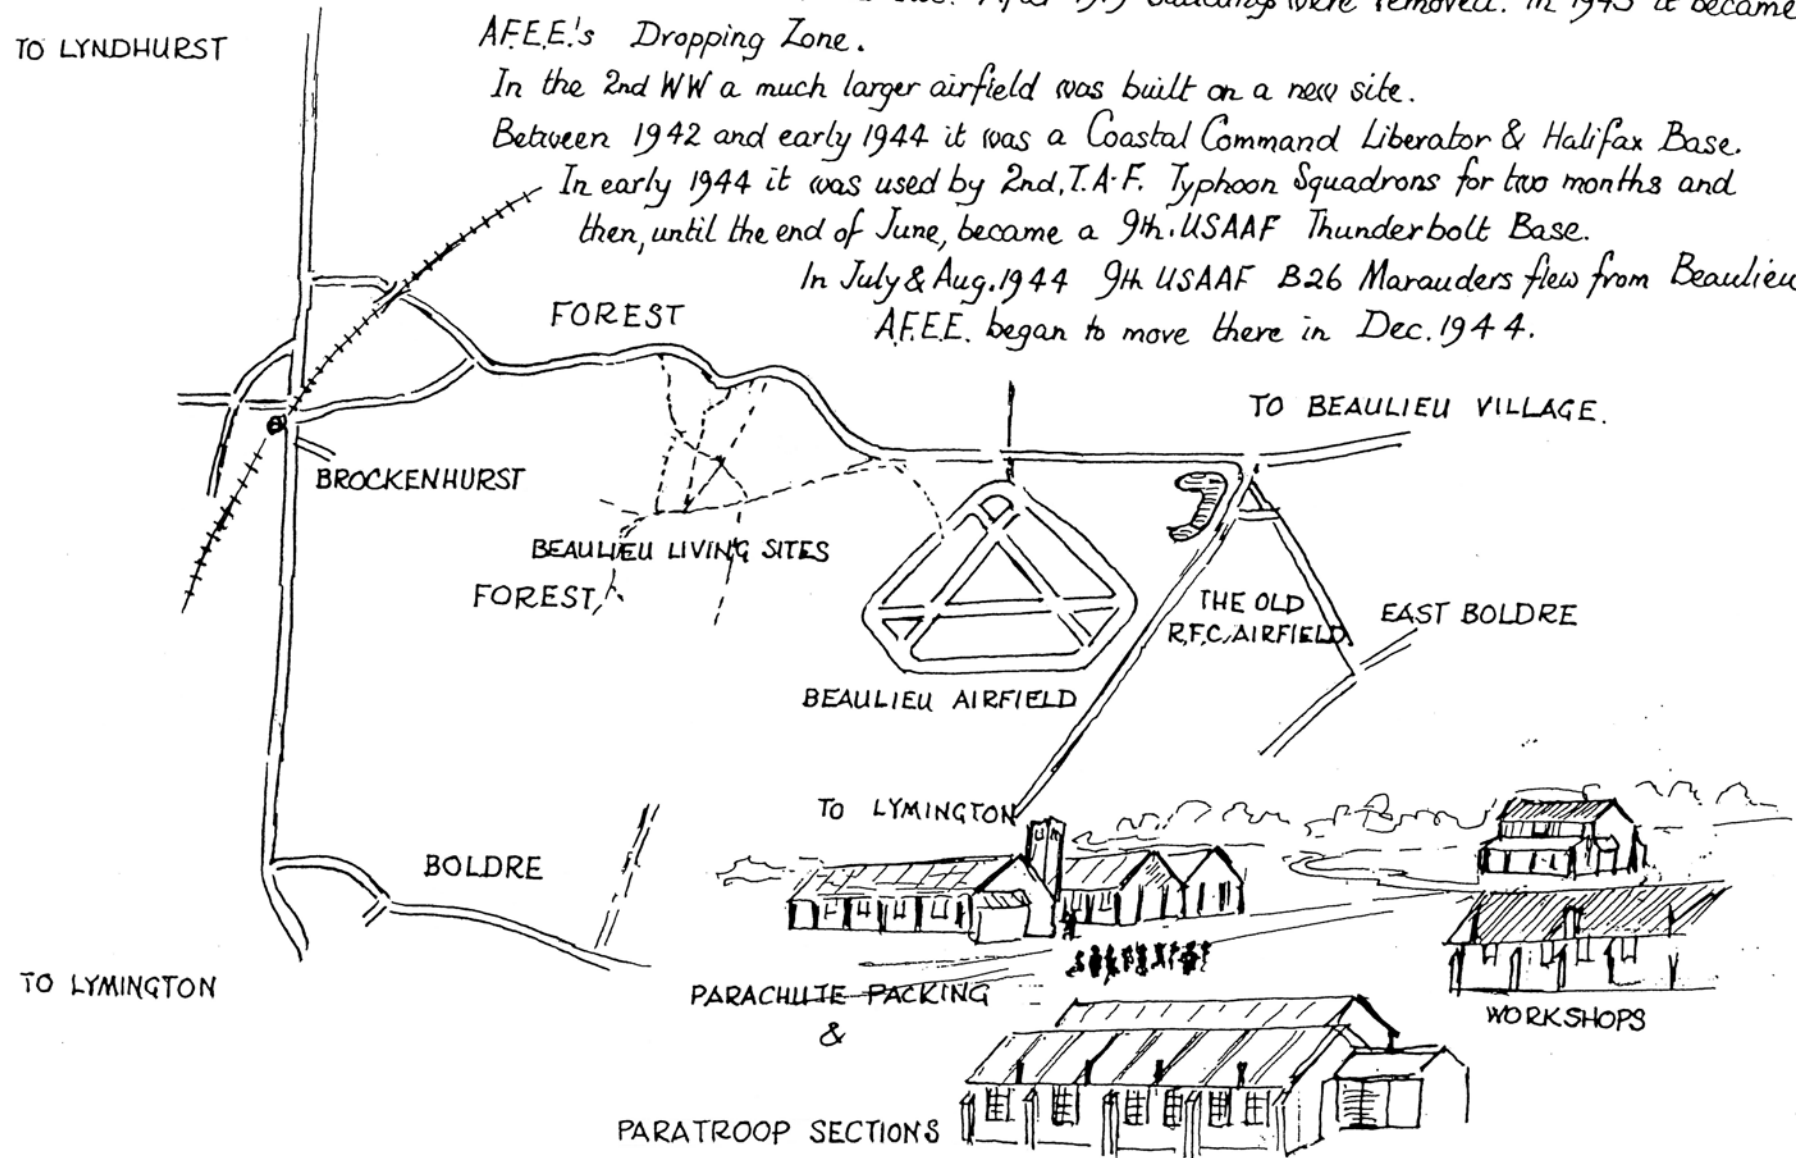 After 1919 buildings were removed. In 1945 it became
A.F.E.E.'s Dropping Zone.
In the 2nd WW a much larger airfield was built on a new site.
Between 1942 and early 1944 it was a Coastal Command Liberator & Halifax Base.
In early 1944 it was used by 2nd, T.A.F. Typhoon Squadrons for two months and
then, until the end of June, became a 9th. USAAF Thunderbolt Base.
In July & Aug. 1944 9th USAAF B26 Marauders flew from Beaulieu
A.F.E.E. began to move there in Dec. 1944.
TO LYNDHURST
FOREST
TO BEAULIEU VILLAGE.
BROCKENHURST
BEAULIEU LIVING SITES
FOREST
THE OLD
R.F.C. AIRFIELD
EAST BOLDRE
BEAULIEU AIRFIELD
TO LYMINGTON
BOLDRE
TO LYMINGTON
PARACHUTE PACKING
&
PARATROOP SECTIONS
WORKSHOPS